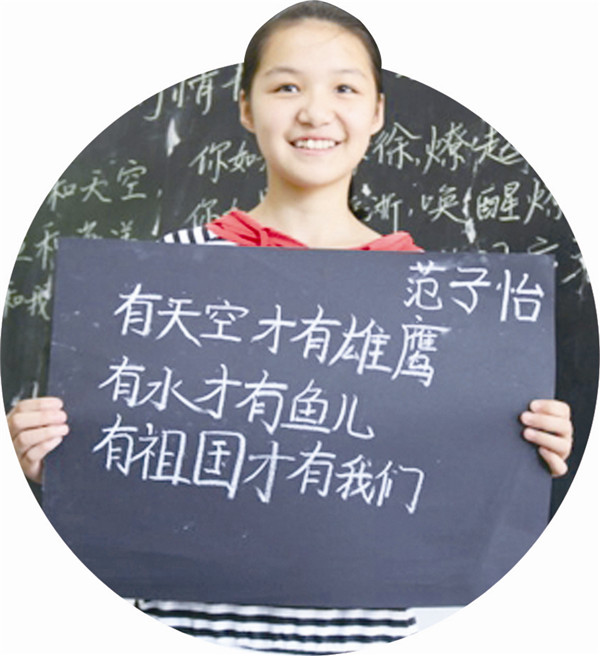 情
你如 徐,燎起
和天空,
唤醒
和
和我
范子怡
有天空才有雄鹰
有水才有鱼儿
有祖国才有我们